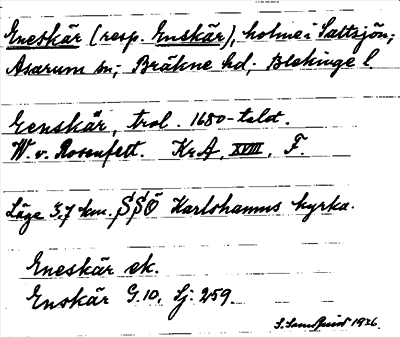 Eneskär (resp. Enskär), holme i Saltsjön;
Asarum sn; Bräkne hd; Blekinge l.
Eenskär, trol. 1680-talet.
W. v. Rosenfelt. KrA, XVIII, F.
Läge 3,7 km. SSÖ Karlshamns kyrka.
Eneskär ek.
Enskär G.10, Sj: 259.
S. Sandquist 1936.